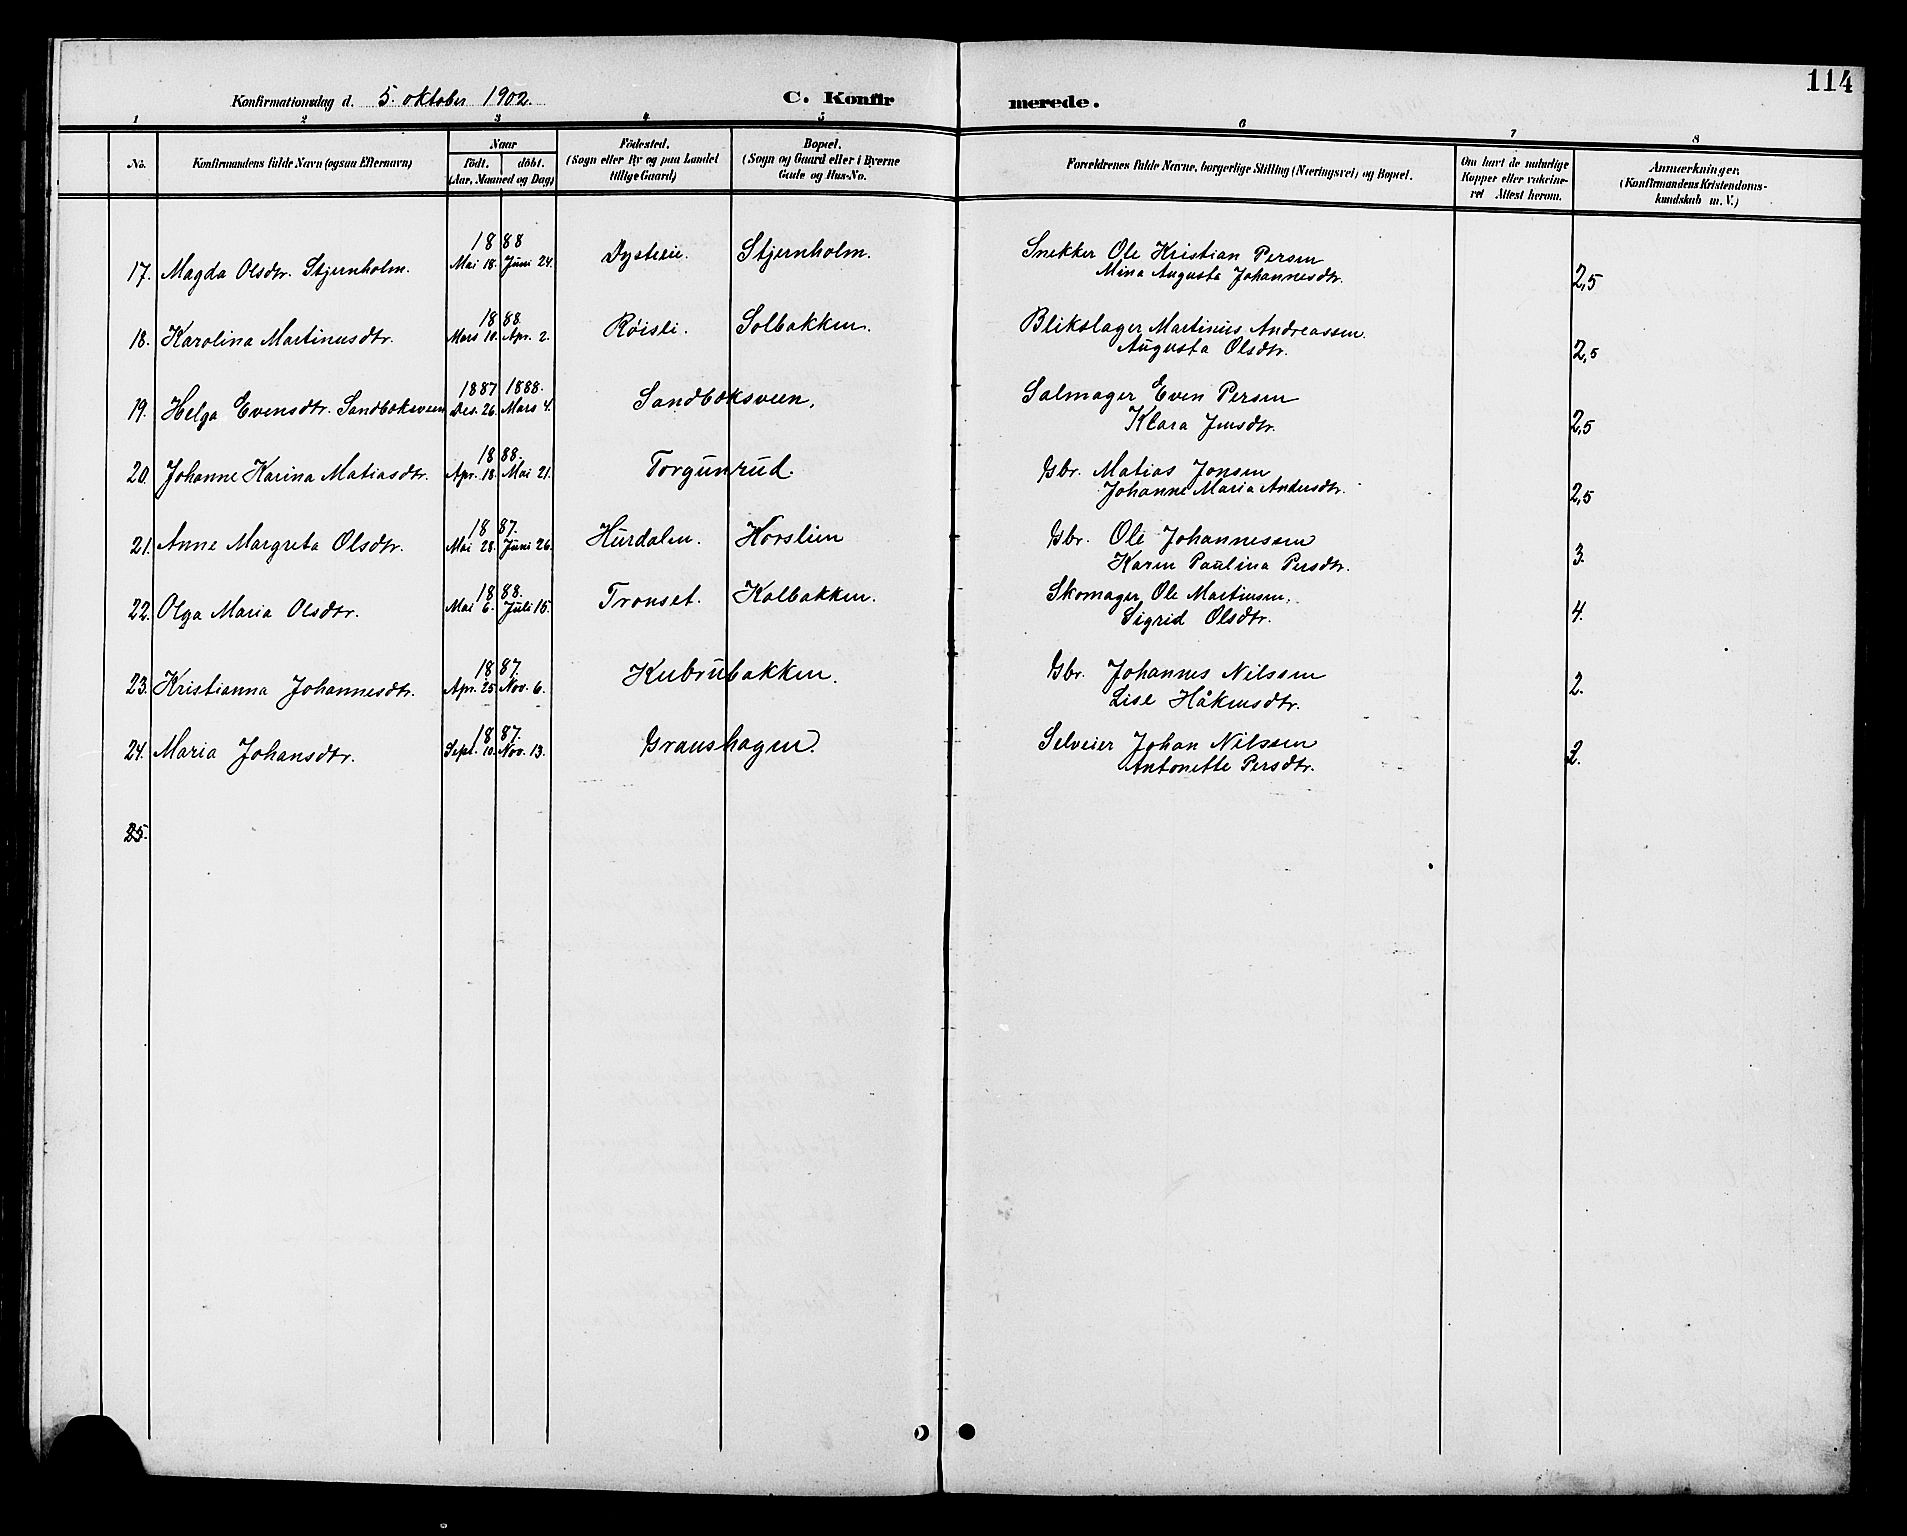 114
Konfirmationsdag d. 5. oktober 1902. C. Konfirmerede.
1 2 3 4 5 6 7 8
No. Konfirmandens fulde Navn (ogsaa Efternavn) Naar født. døbt. (Aar, Maaned og Dag) Födested. (Sogn eller By og paa Landet tillige Gaard) Bopæl. (Sogn og Gaard eller i Byerne Gade og Hus-No. Forældrenes fulde Navne, borgerlige Stilling (Næringsvei) og Bopæl. Om havt de naturlige Kopper eller vakcineret Attest herom. Anmærkninger. (Konfirmandens Kristendomskundskab m. V.)
17. Magda Olsdtr. Stjernholm. 1888 Mai 18. Juni 24. Dysteeie. Stjernholm. Snekker Ole Kristian Persen
Mina Augusta Johannesdtr. 2,5
18. Karolina Martinusdtr. 1888. Mars 10. Apr. 2. Røisli. Solbakken. Blikslager Martinus Andreassen.
Augusta Olsdtr. 2,5
19. Helga Evensdtr. Sandboksveen 1887 Des. 26. 1888. Mars 4. Sandboksveen. Salmager Even Persen
Klara Jensdtr. 2,5
20. Johanne Karina Matiasdtr. 1888. Apr. 18. Mai 21. Torgunrud. Gbr. Matias Jonsen
Johanne Maria Andersdtr. 2,5
21. Anne Margreta Olsdtr. 1887. Mai 28. Juni 26. Hurdalen. Korslien Gbr. Ole Johannessen
Karen Paulina Persdtr. 3.
22. Olga Maria Olsdtr. 1888. Mai 6. Juli 15. Tronset. Kalbakken. Skomager Ole Martinsen.
Sigrid Olsdtr. 4.
23. Kristianna Johannesdtr. 1887. Apr. 25. Nov. 6. Kubrubakken. Gbr. Johannes Nilssen
Lise Håkensdtr. 2.
24. Maria Johansdtr. 1887. Sept. 10. Nov. 13. Graushagen. Selveier Johan Nilssen
Antonette Persdtr. 2.
25.